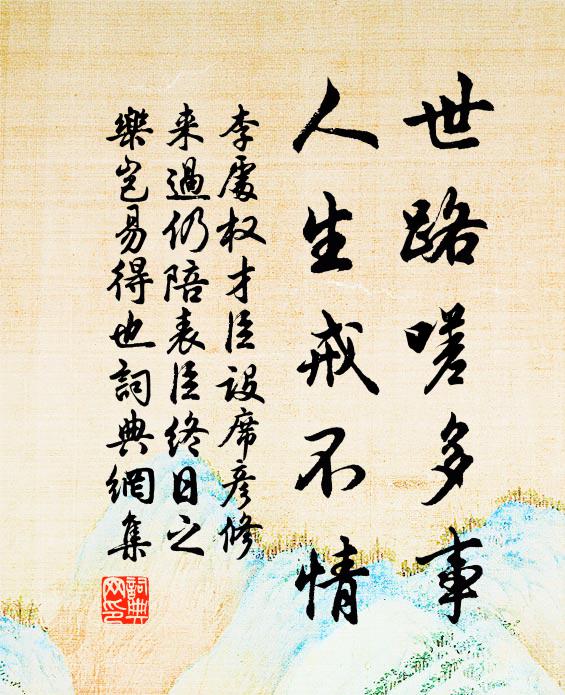 世路嗟多事
人生戒不情
李處权才臣設席彦修
来過仍陪表臣终日之
樂岂易得也詞典網集
詞典
网印